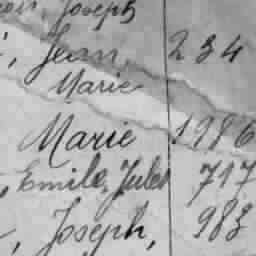 Joseph
, Jean, 234
Marie
Marie 1986
, Emile, Jules 717
, Joseph, 983